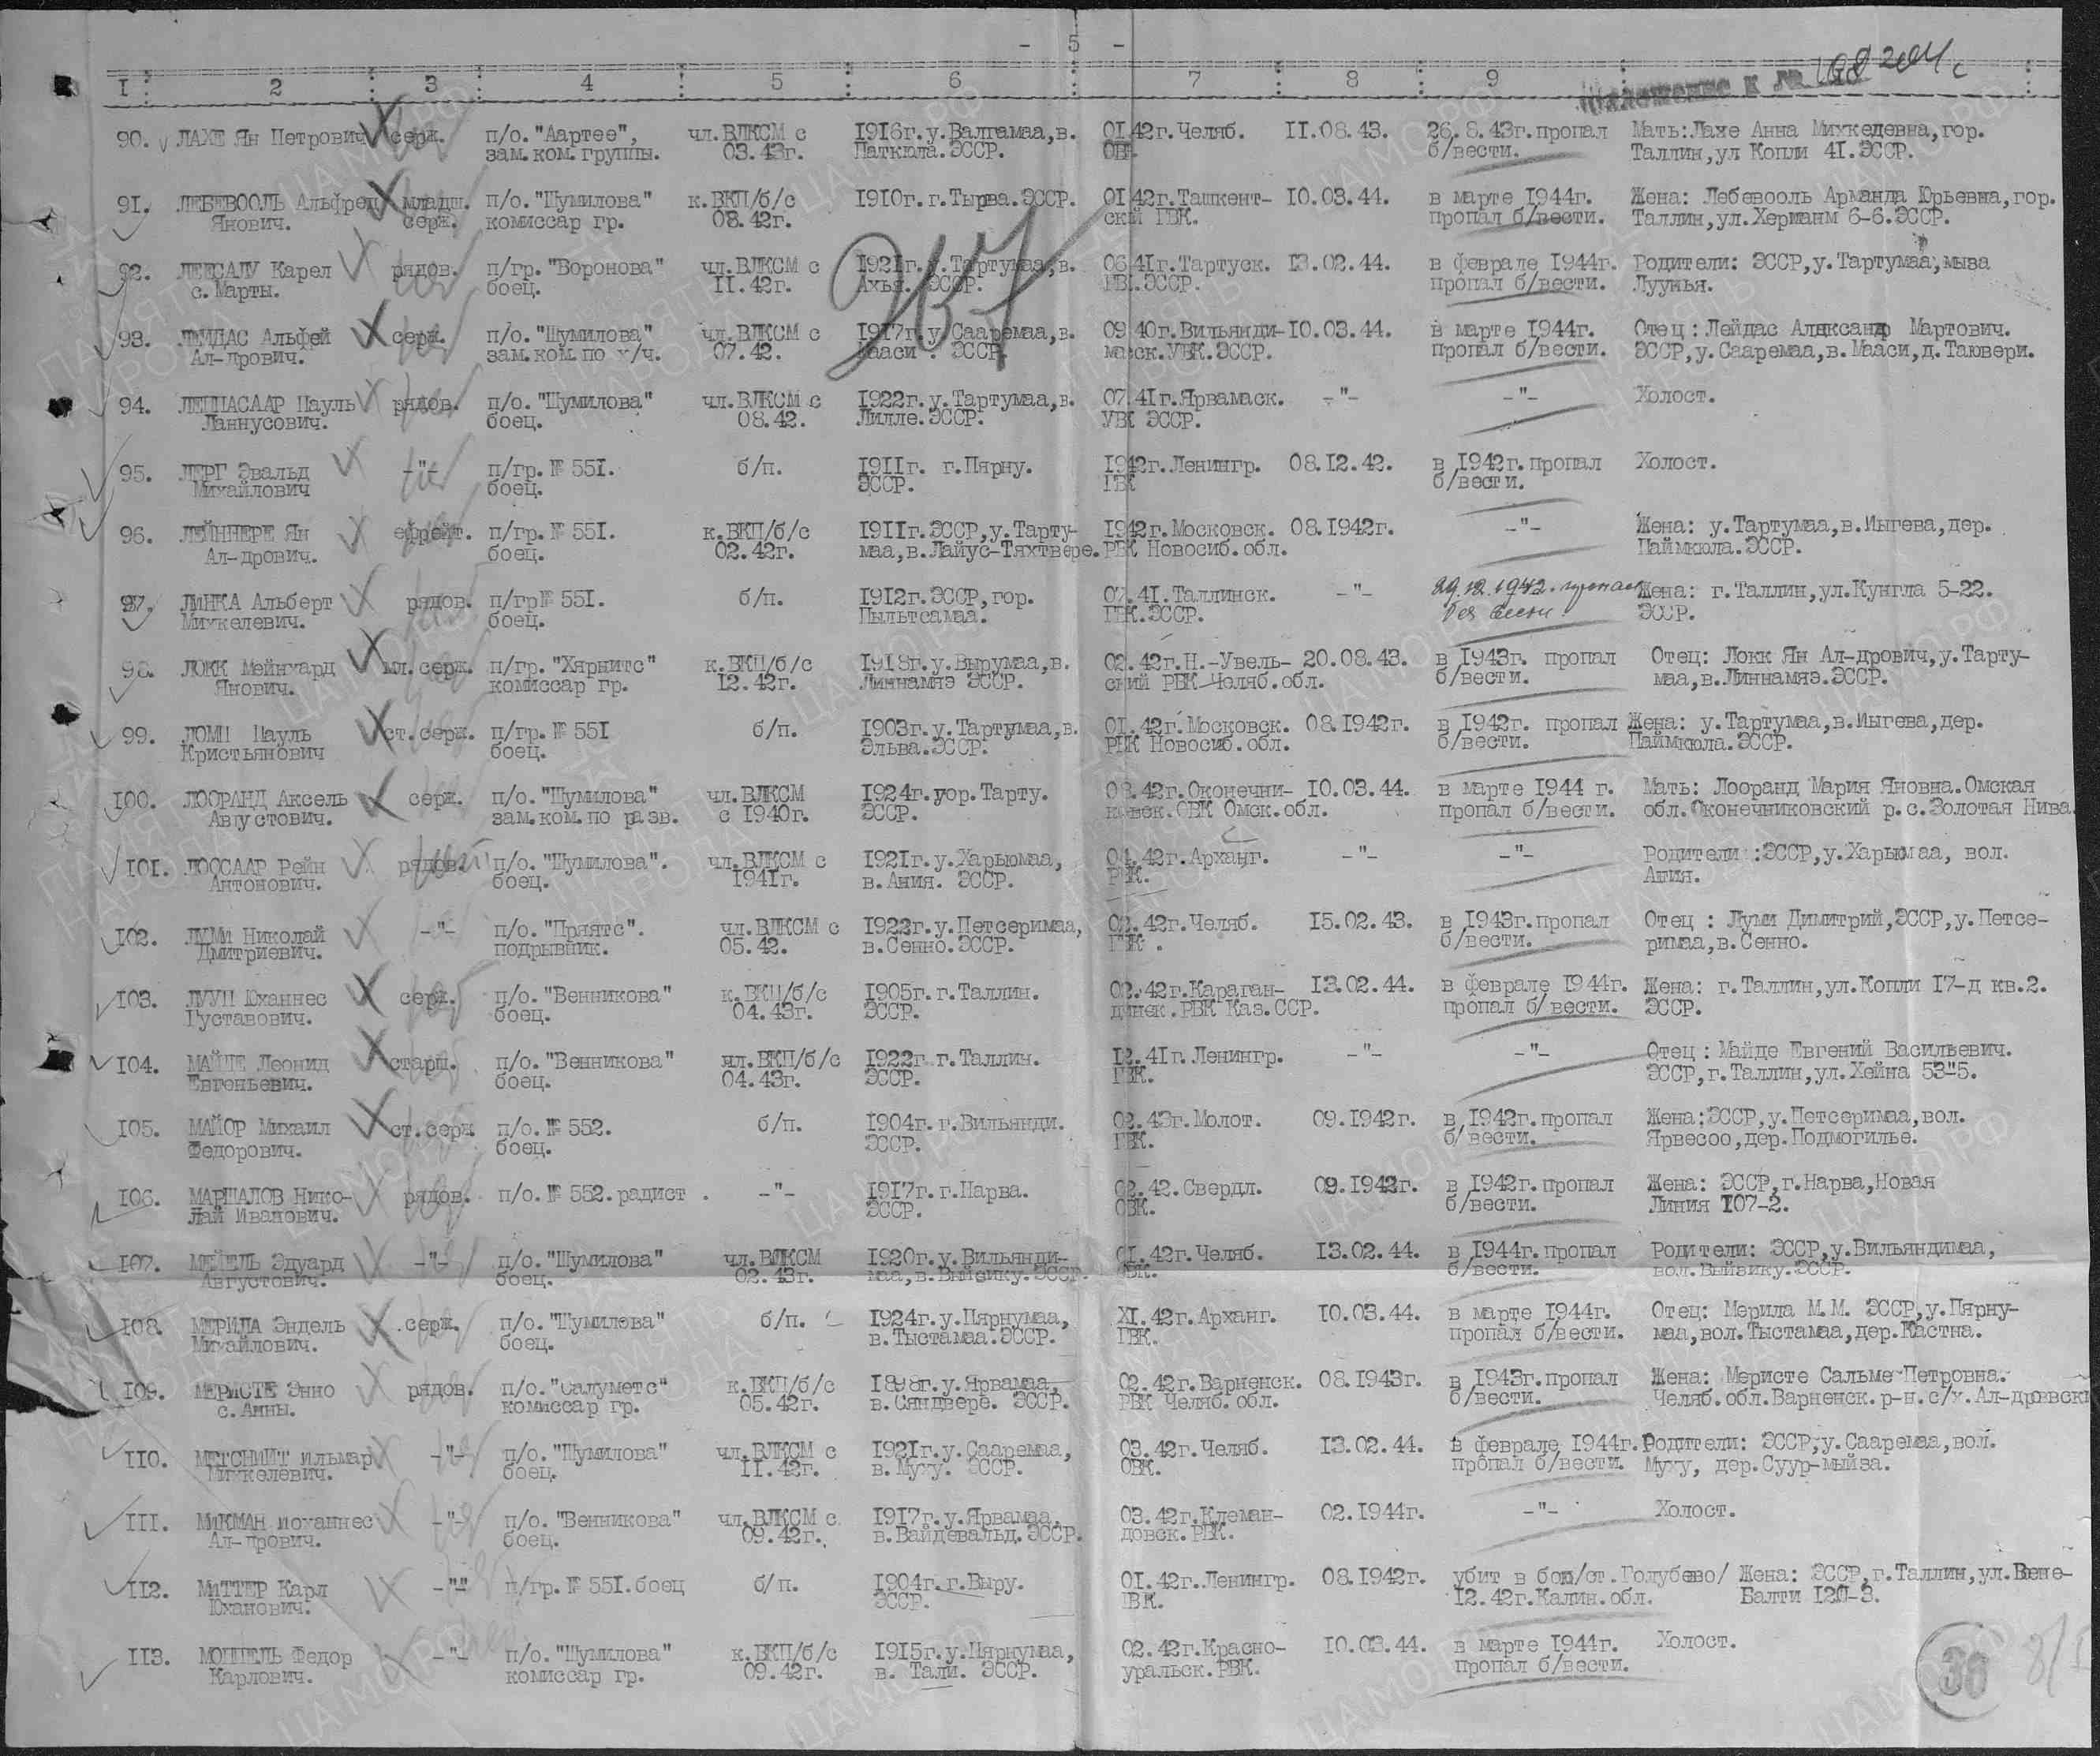 - 5 -
I 2 3 4 5 6 7 8 9
Приложение к №
90. ЛАХЕ Ян Петрович серж. п/о. "Аартее", чл.ВЛКСМ с 1916г.у.Валгамаа,в. 01.42г.Челяб. 11.08.43. 26.8.43г.пропал Мать:Лахе Анна Михкелевна,гор.
зам.ком.группы. 03.43г. Паткюла.ЭССР. б/вести. Таллин,ул Копли 41.ЭССР.
91. ЛЕБЕВООЛЬ Альфред младш. п/о. "Шумилова" к.ВКП/б/с 1910г. г.Тырва.ЭССР. 01.42г.Ташкент- 10.03.44. в марте 1944г. Жена: Лебевооль Арманда Юрьевна,гор.
Янович. серж. комиссар гр. 08.42г. ский ГВК. пропал б/вести. Таллин,ул.Херманм 6-6.ЭССР.
92. ЛЕЕСАЛУ Карел рядов. п/гр. "Воронова" чл.ВЛКСМ с 1921г.у.Тартумаа,в. 06.41г.Тартуск. 13.02.44. в феврале 1944г. Родители: ЭССР,у.Тартумаа,мыза
с.Марты. боец. 11.42г. Ахья. ЭССР. РВК.ЭССР. пропал б/вести. Луунья.
93. ЛЕЙДАС Альфей серж. п/о. "Шумилова" чл.ВЛКСМ с 1917г.у.Сааремаа,в. 09.40г.Вильянди- 10.03.44. в марте 1944г. Отец: Лейдас Александр Мартович.
Ал-дрович. зам.ком.по х/ч. 07.42. Мааси. ЭССР. мааск.УВК.ЭССР. пропал б/вести. ЭССР,у.Сааремаа,в.Мааси,д.Таювери.
94. ЛЕППАСААР Пауль рядов. п/о. "Шумилова" чл.ВЛКСМ с 1922г.у.Тартумаа,в. 07.41г.Ярвамаск. -"- -"- Холост.
Ганнусович. боец. 08.42. Лилле.ЭССР. УВК ЭССР.
95. ЛЕРГ Эвальд -"- п/гр.№ 551. б/п. 1911г. г.Пярну. 1942г.Ленингр. 08.12.42. в 1942г.пропал Холост.
Михайлович боец. ЭССР. ГВК б/вести.
96. ЛЕЙННЕРЕ Ян ефрейт. п/гр.№ 551. к.ВКП/б/с 1911г.ЭССР,у.Тарту- 1942г.Московск. 08.1942г. -"- Жена: у.Тартумаа,в.Иыгева,дер.
Ал-дрович. боец. 02.42г. маа,в.Лайус-Тяхтвере. РВК Новосиб.обл. Паймкюла.ЭССР.
97. ЛИНКА Альберт рядов. п/гр№ 551. б/п. 1912г.ЭССР,гор. 07.41.Таллинск. -"- 29.12.1942. пропал Жена: г.Таллин,ул.Кунгла 5-22.
Михкелевич. боец. Пыльтсамаа. ГВК.ЭССР. без вести ЭССР.
98. ЛОКК Мейнхард мл.серж. п/гр. "Хярнитс" к.ВКП/б/с 1918г.у.Вырумаа,в. 02.42г.Н.-Увель- 20.08.43. в 1943г. пропал Отец: Локк Ян Ал-дрович,у.Тарту-
Янович. комиссар гр. 12.42г. Линнамяэ ЭССР. ский РВК Челяб.обл. б/вести. маа,в.Линнамяэ.ЭССР.
99. ЛОМП Пауль ст.серж. п/гр.№ 551 б/п. 1903г.у.Тартумаа,в. 01.42г.Московск. 08.1942г. в 1942г. пропал Жена: у.Тартумаа,в.Иыгева,дер.
Кристьянович боец. Эльва.ЭССР. РВК Новосиб.обл. б/вести. Паймкюла.ЭССР.
100. ЛООРАНД Аксель серж. п/о. "Шумилова" чл.ВЛКСМ 1924г.гор.Тарту. 03.42г.Оконечни- 10.03.44. в марте 1944 г. Мать: Лооранд Мария Яновна.Омская
Августович. зам.ком.по разв. с 1940г. ЭССР. ковск.ОВК Омск.обл. пропал б/вести. обл.Оконечниковский р.с.Золотая Нива.
101. ЛООСААР Рейн рядов. п/о. "Шумилова". чл.ВЛКСМ с 1921г.у.Харьюмаа, 04.42г.Арханг. -"- -"- Родители :ЭССР,у.Харьюмаа, вол.
Антонович. боец. 1941г. в.Ания. ЭССР. РВК. Ания.
102. ЛУМИ Николай -"- п/о. "Прятс". чл.ВЛКСМ с 1922г.у.Петсеримаа, 02.42г.Челяб. 15.02.43. в 1943г.пропал Отец : Луми Димитрий,ЭССР,у.Петсе-
Дмитриевич. подрывник. 05.42. в.Сенно.ЭССР. ГВК. б/вести. римаа,в.Сенно.
103. ЛУУП Юханнес серж. п/о. "Венникова" к.ВКП/б/с 1905г.г.Таллин. 02.42г.Караган- 13.02.44. в феврале 1944г. Жена: г.Таллин,ул.Копли 17-д кв.2.
Густавович. боец. 04.43г. ЭССР. динск.РВК Каз.ССР. пропал б/вести. ЭССР.
104. МАЙДЕ Леонид старш. п/о. "Венникова" чл.ВКП/б/с 1922г.г.Таллин. 12.41г.Ленингр. -"- -"- Отец : Майде Евгений Васильевич.
Евгеньевич. боец. 04.43г. ЭССР. ГВК. ЭССР,г.Таллин,ул.Хейна 53-5.
105. МАЙОР Михаил ст.серж п/о.№ 552. б/п. 1904г.г.Вильянди. 02.43г.Молот. 09.1942г. в 1942г.пропал Жена:ЭССР,у.Петсеримаа,вол.
Федорович. боец. ЭССР. ГВК. б/вести. Ярвесоо,дер.Подмогилье.
106. МАРШАЛОВ Нико- рядов. п/о.№ 552.радист. -"- 1917г.г.Нарва. 02.42.Свердл. 09.1942г. в 1942г.пропал Жена: ЭССР,г.Нарва,Новая
лай Иванович. ЭССР. ОВК. б/вести. Линия 107-2.
107. МЕЙЕЛЬ Эдуард -"- п/о. "Шумилова" чл.ВЛКСМ 1920г.у.Вильянди- 01.42г.Челяб. 13.02.44. в 1944г.пропал Родители: ЭССР,у.Вильяндимаа,
Августович. боец. 02.43г. маа,в.Выйвику.ЭССР. ОВК. б/вести. вол.Выйвику.ЭССР.
108. МЕРИЛА Эндель серж. п/о. "Шумилова" б/п. 1924г.у.Пярнумаа, XI.42г.Арханг. 10.03.44. в марте 1944г. Отец: Мерила М.М. ЭССР,у.Пярну-
Михайлович. боец. в.Тыстамаа.ЭССР. ГВК. пропал б/вести. маа,вол.Тыстамаа,дер.Кастна.
109. МЕРИСТЕ Энно рядов. п/о."Салуметс" к.ВКП/б/с 1898г.у.Ярвамаа, 02.42г.Варненск. 08.1943г. в 1943г.пропал Жена: Меристе Сальме Петровна.
с.Анны. комиссар гр. 05.42г. в.Сяндвере. ЭССР. РВК Челяб.обл. б/вести. Челяб.обл.Варненск.р-н.с/х.Ал-дровски
110. МЕТСНИИТ Ильмар -"- п/о. "Шумилова" чл.ВЛКСМ с 1921г.у.Сааремаа, 03.42г.Челяб. 13.02.44. в феврале 1944г. Родители: ЭССР,у.Сааремаа,вол.
Михкелевич. боец. 11.42г. в.Муху. ЭССР. ОВК. пропал б/вести. Муху, дер.Суур-мыйза.
111. МИКМАН Иоханнес -"- п/о. "Венникова" чл.ВЛКСМ с 1917г.у.Ярвамаа, 03.42г.Клеман- 02.1944г. -"- Холост.
Ал-дрович. боец. 09.42г. в.Вайдевальд.ЭССР. довск.РВК.
112. МИТТЕР Карл -"- п/гр.№ 551.боец б/п. 1904г.г.Выру. 01.42г.Ленингр. 08.1942г. убит в бою/ст.Голубево/ Жена: ЭССР,г.Таллин,ул.Вене-
Юханович. ЭССР. ГВК. 12.42г.Калин.обл. Балти
113. МОППЕЛЬ Федор -"- п/о. "Шумилова" к.ВКП/б/с 1915г.у.Пярнумаа, 02.42г.Красно- 10.03.44. в марте 1944г. Холост.
Карлович. комиссар гр. 09.42г. в. Тали. ЭССР. уральск.РВК. пропал б/вести.
36